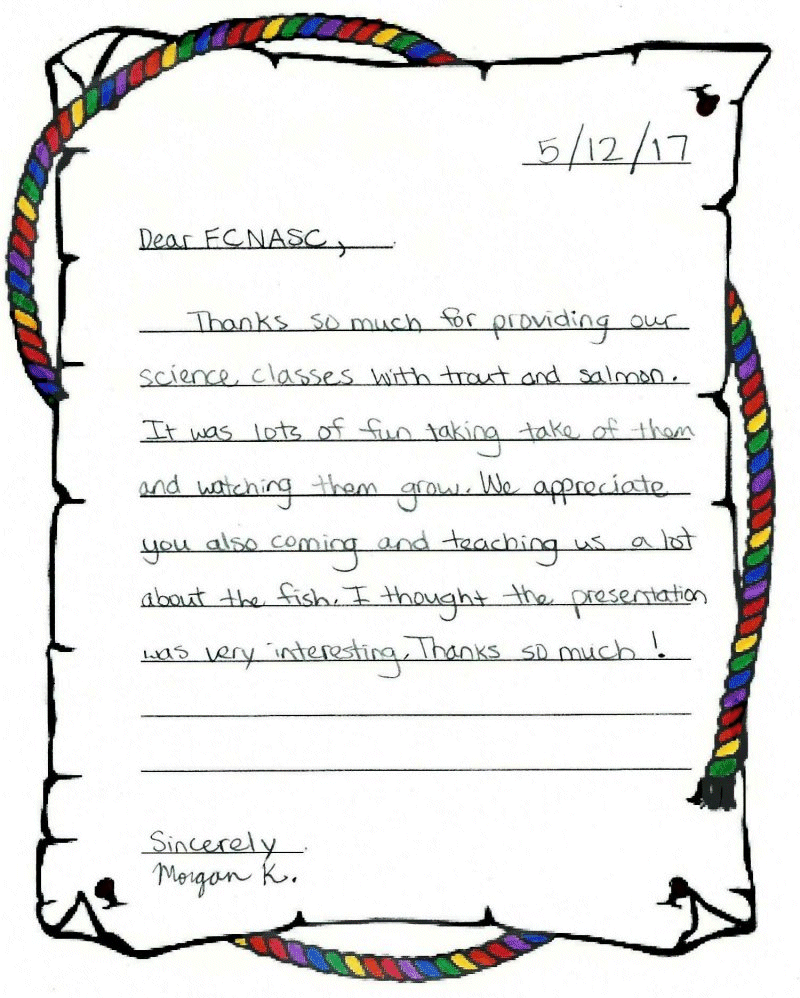 5/12/17
Dear ECNASC,
Thanks so much for providing our
science classes with trout and salmon.
It was lots of fun taking take of them
and watching them grow. We appreciate
you also coming and teaching us a lot
about the fish. I thought the presentation
was very interesting. Thanks so much!
Sincerely
Morgan K.